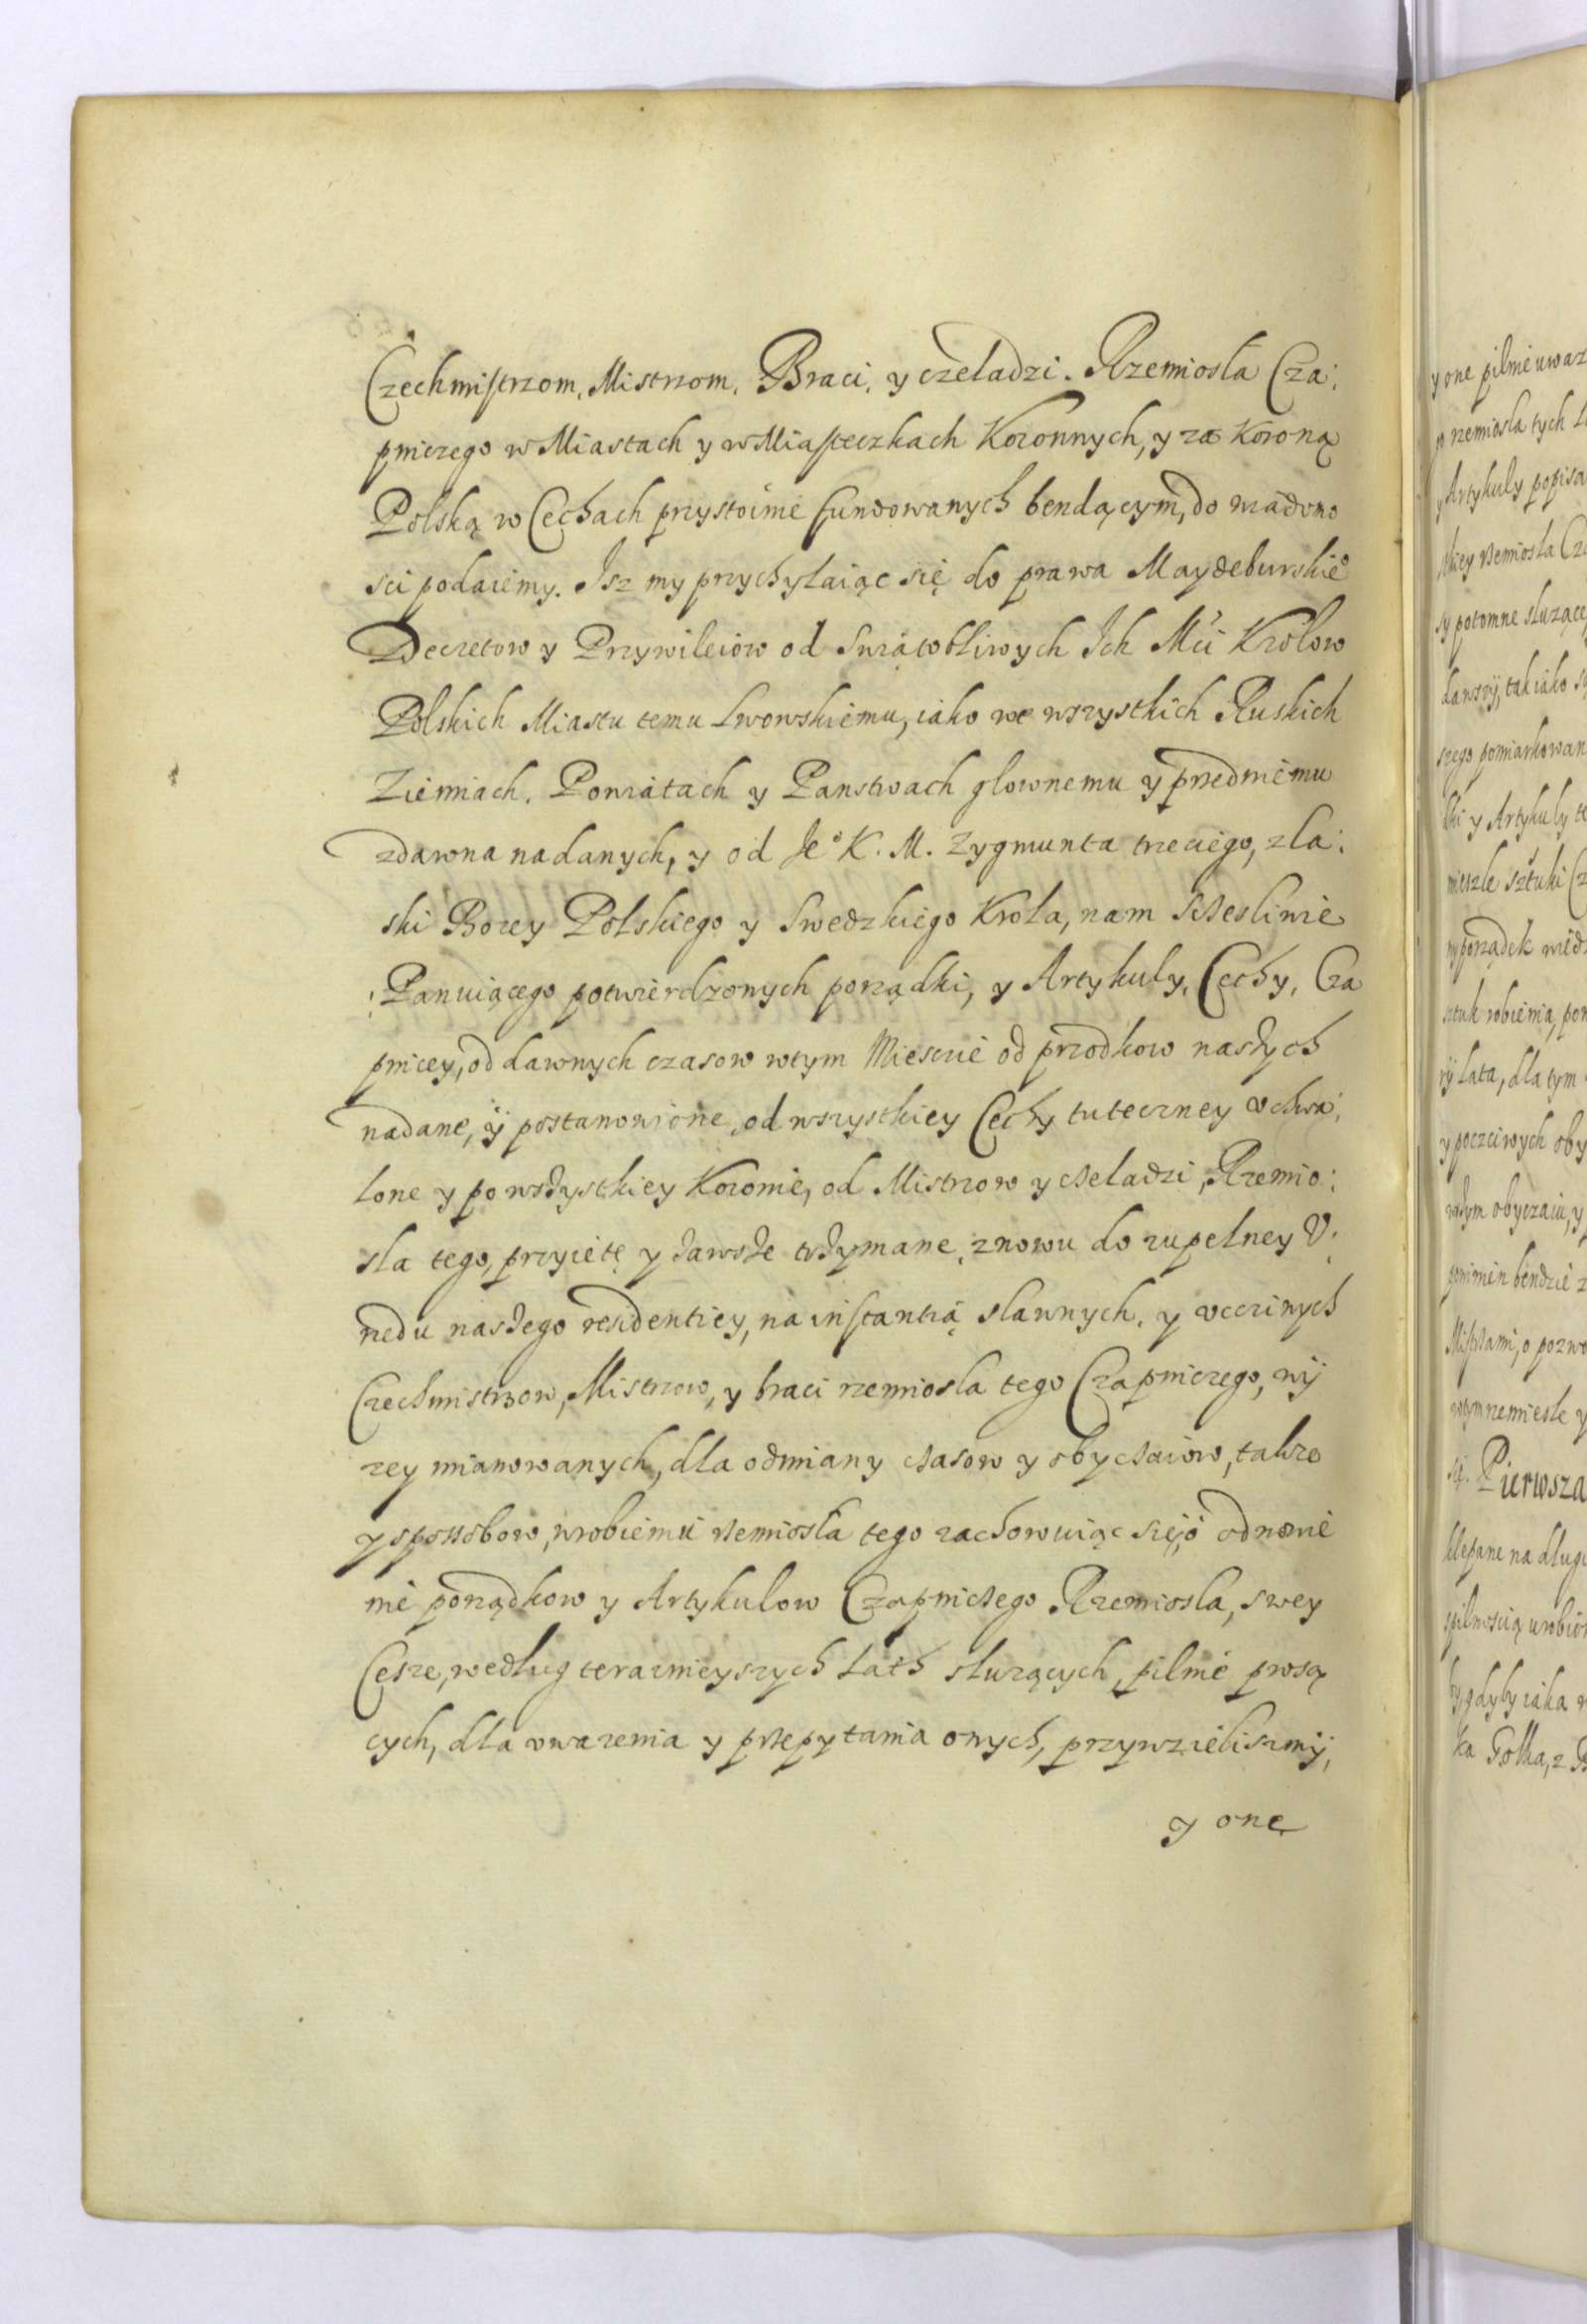 Czechmistrzom, Mistrzom, Braci, y czeladzi. Rzemiosła Cza:
pniczego w Miastach y w Miasteczkach Koronnych, y za Koroną
Polską w Cechach przystoinie fundowanych bendącym, do wiadomo
sci podaiemy. Isz my przychylaiąc się do prawa Maydeburskie°
Decretow y Przywileiow od Swiątobliwych Ich Mći Krolow
Polskich Miastu temu Lwowskiemu, iako we wszystkich Ruskich
Ziemiach, Powiatach y Panstwach glownemu y przedniemu
zdawna nadanych, y od Je° K. M. Zygmunta trzeciego, z la:
ski Bozey Polskiego y Swedzkiego Krola, nam sczesliwie
Panuiącego potwierdzonych porządki, y Artykuly, Cechy, Cza
pnicey, od dawnych czasow wtym Miescie od przodkow naszych
nadane, ÿ postanowione, od wszystkiey Cechy tuteczney vchwa:
lone y po wszystkiey Koronie, od Mistrzow y czeladzi, Rzemio:
sla tego, przyietę y zawsze trzymane, znowu do zupelney V:
rzedu naszego residentiey, na instantią slawnych, y vcciwych
Czechmistrzow, Mistrzow, y braci rzemiosla tego Czapniczego, wÿ
zey mianowanych, dla odmiany czasow y obyczaiow, takze
y sposobow, wrobieniu rzemiosła tego zachowuiąc się, o odnowie
nie porządkow y Artykulow Czapniczego Rzemiosla, swey
Cesze, według teraznieyszych Lath sluzących, pilnie prosą
cych, dla vwazenia y przepytania onych, przywzielismÿ,
y onę

y one pilnie uwaz
rzemiosla tych
Artykuly popisa
rzemiosla
potomne sluzące
tak iako
szego pomiarkowan
y Artykuly
sztuki
porządek
robienia,
lata, dla tym
y poczciwych oby
obyczaiu, y
bendzie z
o pozwo
rzemiesle y
się. Pierwsza
klepane na dlug
gdyby iaka